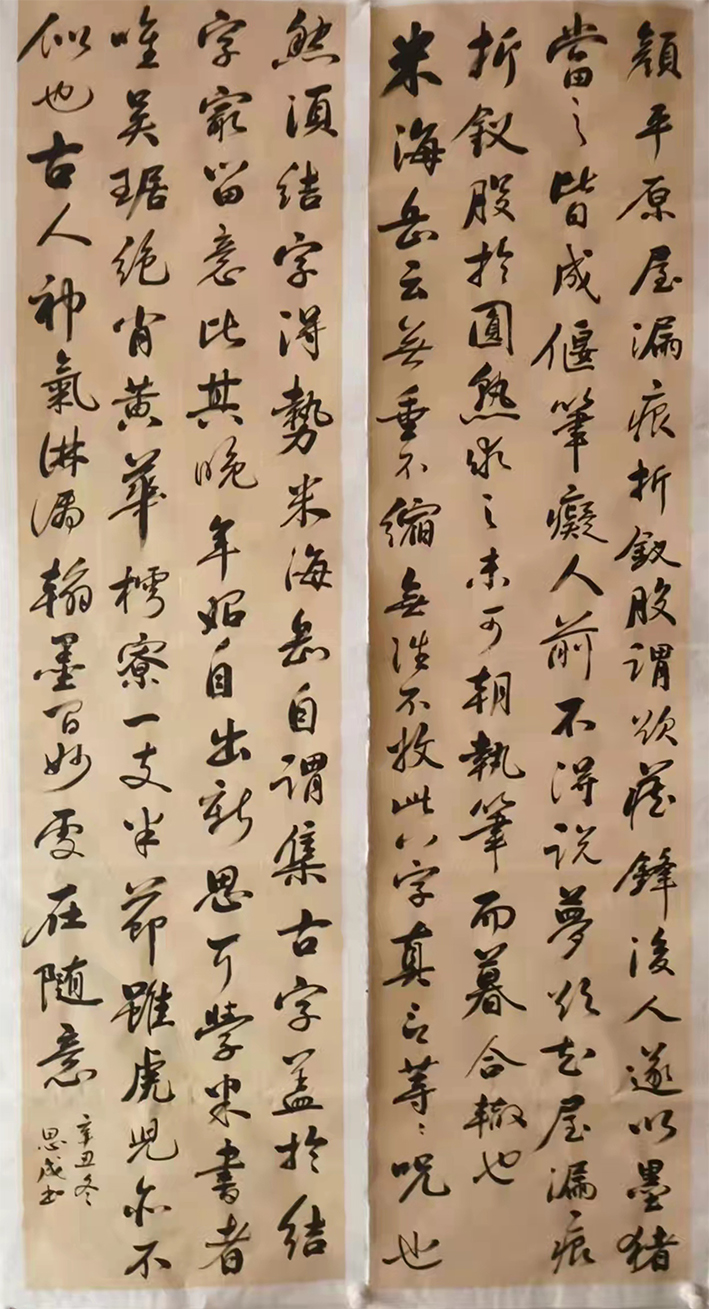 顏平原屋漏痕折釵股謂欲藏鋒後人遂以墨猪
當之皆成偃筆癡人前不得説夢欲知屋漏痕
折釵股於圓熟求之未可朝執筆而暮合轍也
米海岳云無垂不縮無往不收此八字真言等等咒也
然須結字得勢米海岳自謂集古字蓋於結
字最留意比其晚年始自出新思耳學米書者
唯吳琚絕肖黃華樗寮一支半節雖虎兒亦不
似也古人神氣淋漓翰墨間妙處在隨意
辛丑冬
思成书